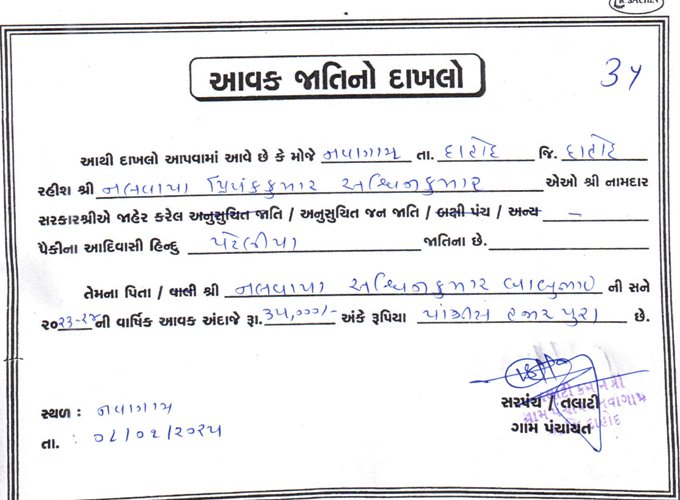 આવક જાતિનો દાખલો
૩૫
આથી દાખલો આપવામાં આવે છે કે મોજે નવાગામ તા. દાહોદ જિ. દાહોદ
રહીશ શ્રી નલવાયા પ્રિયંકકુમાર અશ્વિનકુમાર એઓ શ્રી નામદાર
સરકારશ્રીએ જાહેર કરેલ અનુસુચિત જાતિ / અનુસુચિત જન જાતિ / બક્ષી પંચ / અન્ય –
પૈકીના આદિવાસી હિન્દુ પટેલીયા જાતિના છે.
તેમના પિતા / વાલી શ્રી નલવાયા અશ્વિનકુમાર બાબુભાઇ ની સને
૨૦૨૩-૨૪ની વાર્ષિક આવક અંદાજે રૂા. ૩૫,૦૦૦/- અંકે રૂપિયા પાંત્રીસ હજાર પુરા છે.
સ્થળ : નવાગામ
તા. : ૦૮/૦૧/૨૦૨૫
સરપંચ / તલાટી
ગામ પંચાયત
તલાટી કમ મંત્રી
ગ્રામ પંચાયત નવાગામ
દાહોદ